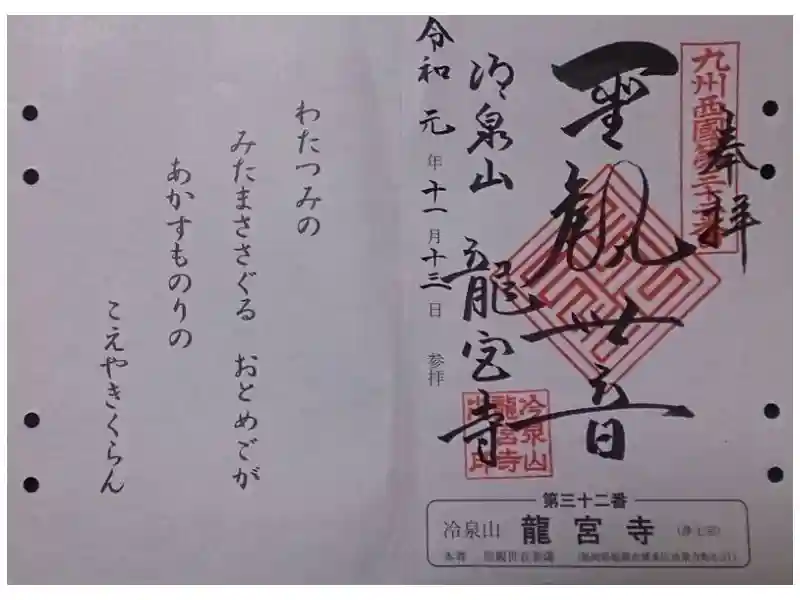 奉拝
九州西国第三十二番
聖観世音
冷泉山 龍宮寺
冷泉山龍宮寺之印
令和元年十一月十三日 参拝
第三十二番
冷泉山 龍宮寺 (浄土宗)
本尊
わたつみの
みたまささぐる おとめごが
あかすものりの
こえやきくらん